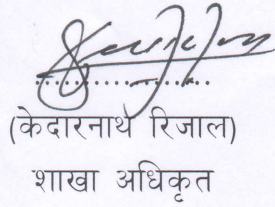 ..................
(केदारनाथ रिजाल)
शाखा अधिकृत